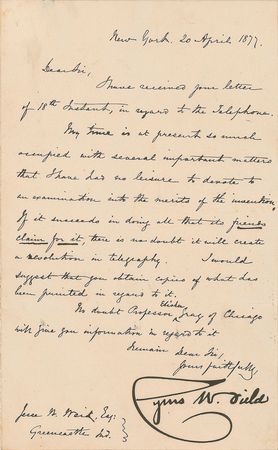 New York. 20 April 1877.
Dear Sir,
I have received your letter
of 18th Instant, in regard to the Telephone.
My time is at present so much
occupied with several important matters
that I have had no leisure to devote to
an examination into the merits of the invention.
If it succeeds in doing all that its friends
claim for it, there is no doubt it will create
a revolution in telegraphy. I would
suggest that you obtain copies of what has
been printed in regard to it.
No doubt Professor Elisha Gray of Chicago
will give you information in regard to it
Remain Dear Sir,
Yours faithfully,
Cyrus W. Field
Jesse W. Weik, Esq:
Greencastle, Ind.